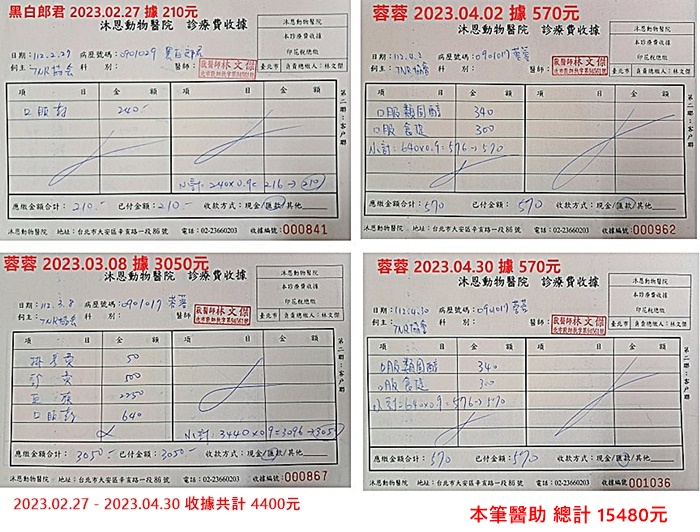 黑白郎君 2023.02.27 據 210元
沐恩動物醫院 診療費收據
日期:112.2.27 病歷號碼:0901029 黑白郎君
飼主:TNR協會 科別: 醫師: 獸醫師林文傑
沐恩動物醫院
本診療費收據
印花稅總繳
臺北市 負責總繳人:林文傑
項目 金額 項目 金額
口服藥 240.-
小計=240×0.9=216→210
第二聯:客戶聯
應繳金額合計:210.- 已付金額:210.- 收款方式:現金/匯款/其他
沐恩動物醫院 地址:台北市大安區辛亥路一段86號 電話:02-23660203 收據編號:000841
蓉蓉 2023.04.02 據 570元
沐恩動物醫院 診療費收據
日期:112.4.2 病歷號碼:0901017 蓉蓉
飼主:TNR協會 科別: 醫師: 獸醫師林文傑
沐恩動物醫院
本診療費收據
印花稅總繳
臺北市 負責總繳人:林文傑
項目 金額 項目 金額
口服類固醇 340
口服 300
小計=640×0.9=576→570
第二聯:客戶聯
應繳金額合計:570 已付金額:570 收款方式:現金/匯款/其他
沐恩動物醫院 地址:台北市大安區辛亥路一段86號 電話:02-23660203 收據編號:000962
蓉蓉 2023.03.08 據 3050元
沐恩動物醫院 診療費收據
日期:112.3.8 病歷號碼:0901017 蓉蓉
飼主:TNR協會 科別: 醫師: 獸醫師林文傑
沐恩動物醫院
本診療費收據
印花稅總繳
臺北市 負責總繳人:林文傑
項目 金額 項目 金額
掛號費 50
診費 500
血檢 2250
口服藥 640
小計=3440×0.9=3096→3050
第二聯:客戶聯
應繳金額合計:3050.- 已付金額:3050.- 收款方式:現金/匯款/其他
沐恩動物醫院 地址:台北市大安區辛亥路一段86號 電話:02-23660203 收據編號:000867
蓉蓉 2023.04.30 據 570元
沐恩動物醫院 診療費收據
日期:112.4.30 病歷號碼:0901017 蓉蓉
飼主:TNR協會 科別: 醫師: 獸醫師林文傑
沐恩動物醫院
本診療費收據
印花稅總繳
臺北市 負責總繳人:林文傑
項目 金額 項目 金額
口服類固醇 340
口服 300
小計=640×0.9=576→570
第二聯:客戶聯
應繳金額合計:570 已付金額:570 收款方式:現金/匯款/其他
沐恩動物醫院 地址:台北市大安區辛亥路一段86號 電話:02-23660203 收據編號:001036
2023.02.27 - 2023.04.30 收據共計 4400元
本筆醫助 總計 15480元